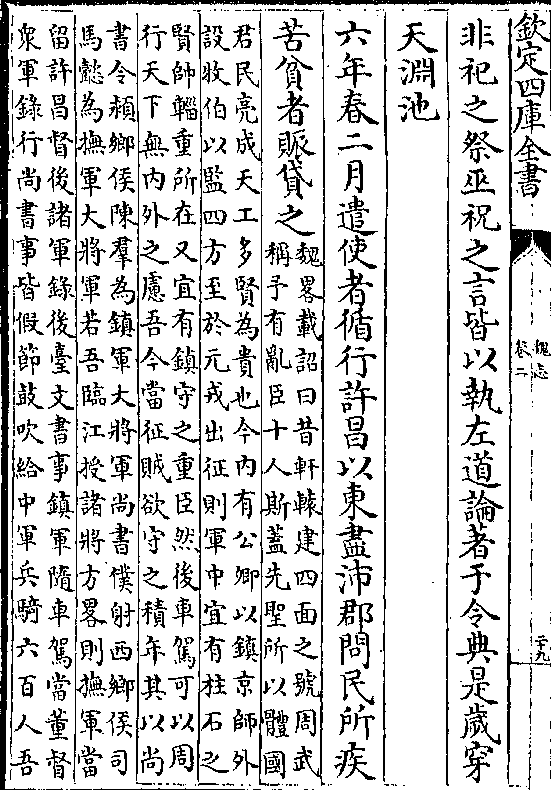 欽定四庫全書
魏志
卷二
二十九
非祀之祭巫祝之言皆以執左道論著于令典是歲穿
天淵池
六年春二月遣使者循行許昌以東盡沛郡問民所疾
苦貧者賑貸之
魏畧載詔曰昔軒轅建四面之號周武
稱予有亂臣十人斯蓋先聖所以體國
君民亮成天工多賢為貴也今内有公卿以鎮京師外
設牧伯以監四方至於元戎出征則軍中宜有柱石之
賢帥輜重所在又宜有鎮守之重臣然後車駕可以周
行天下無内外之慮吾今當征賊欲守之積年其以尚
書令頴鄉侯陳羣為鎮軍大將軍尚書僕射西鄉侯司
馬懿為撫軍大將軍若吾臨江授諸將方畧則撫軍當
留許昌督後諸軍錄後臺文書事鎮軍隨車駕當董督
衆軍錄行尚書事皆假節鼓吹給中軍兵騎六百人吾